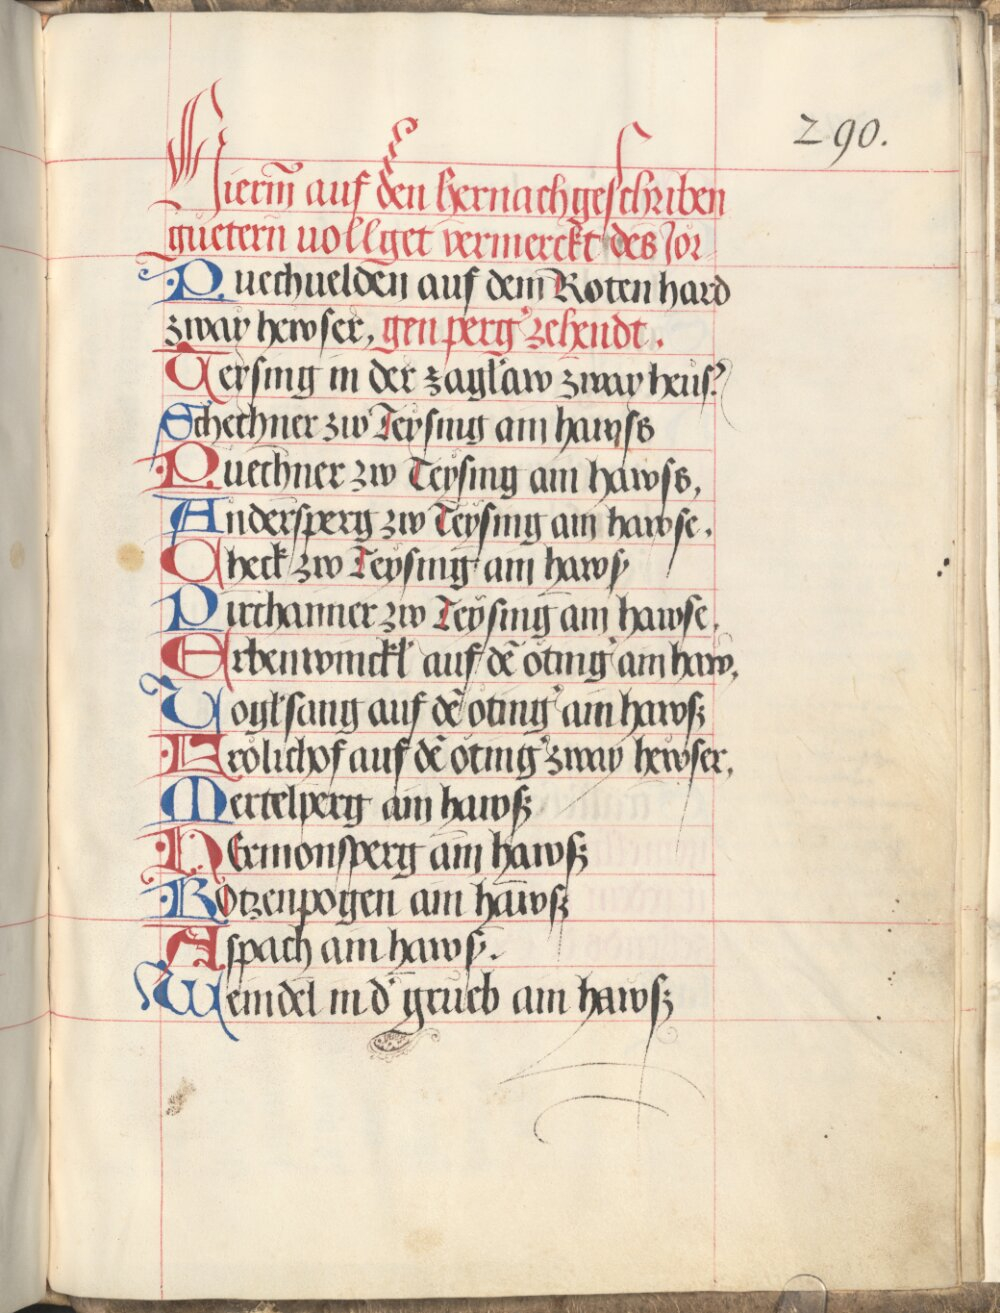 290.
Hierin̄ auf den hernachgeschriben
guetern vollget vermerckt des Jor
Puechuelden auf dem Rotenhard
zway hewser, gen perg zehendt.
Teysing in der zaglaw zway heus̉
Schechner zw Teysing ain hawss
Puechner zw Teysing ain hawss,
Andersperg zw Teysing ain hawse,
Check zw Teysing ain haws
Pirchanner zw Teysing ain hawse,
Erbenwinckl auf dē öting ain haw,
Voglsang auf dē öting ain hawsz
Frölichof auf dē öting zway hewser,
Mertelperg ain hawsz
Hermonsperg ain hawsz
Rotzenpogen ain hawsz
Aspach ain haws.
Weindel in d' grueb ain hawsz